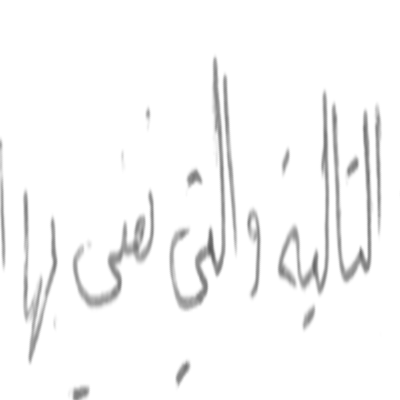 التالية والتي نعني بها